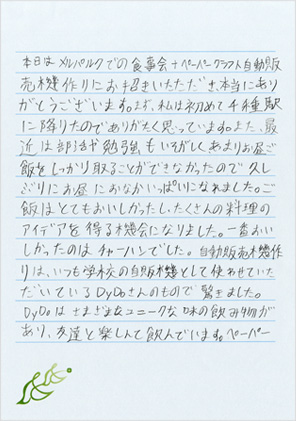 本日はメルパルクでの食事会+ペーパークラフト自動販
売機作りにお招きいただだき、本当にあり
がとうございます。まず、私は初めて千種駅
に降りたのでありがたく思っています。また、最
近は部活や勉強もいそがしく、あまりお昼ご
飯をしっかり取ることができなかったので久し
ぶりにお昼におなかいっぱいになれました。ご
飯はとてもおいしかったし、たくさんの料理の
アイデアを得る機会になりました。一番おい
しかったのはチャーハンでした。自動販売機作
りは、いつも学校の自販機として使わせていた
だいているDyDoさんのもので驚きました。
DyDoはさまざまなユニークな味の飲み物が
あり、友達と楽しんで飲んでいます。ペーパー